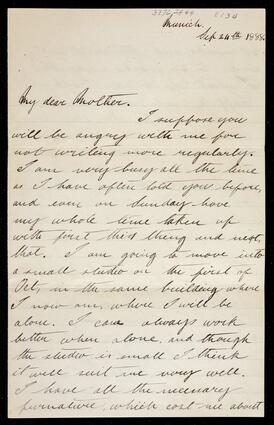 Munich.
Sep 24th 1888.
My dear Mother.
I suppose you
will be angry with me for
not writing more regularly.
I am very busy all the time
as I have often told you before,
and even on Sunday have
my whole time taken up
with first this thing and next,
that. I am going to move into
a small studio on the first of
Oct, in the same building where
I now am, where I will be
alone. I can always work
better when alone, and though
the studio is small I think
it will suit me very well.
I have all the necessary
furniture, which cost me about